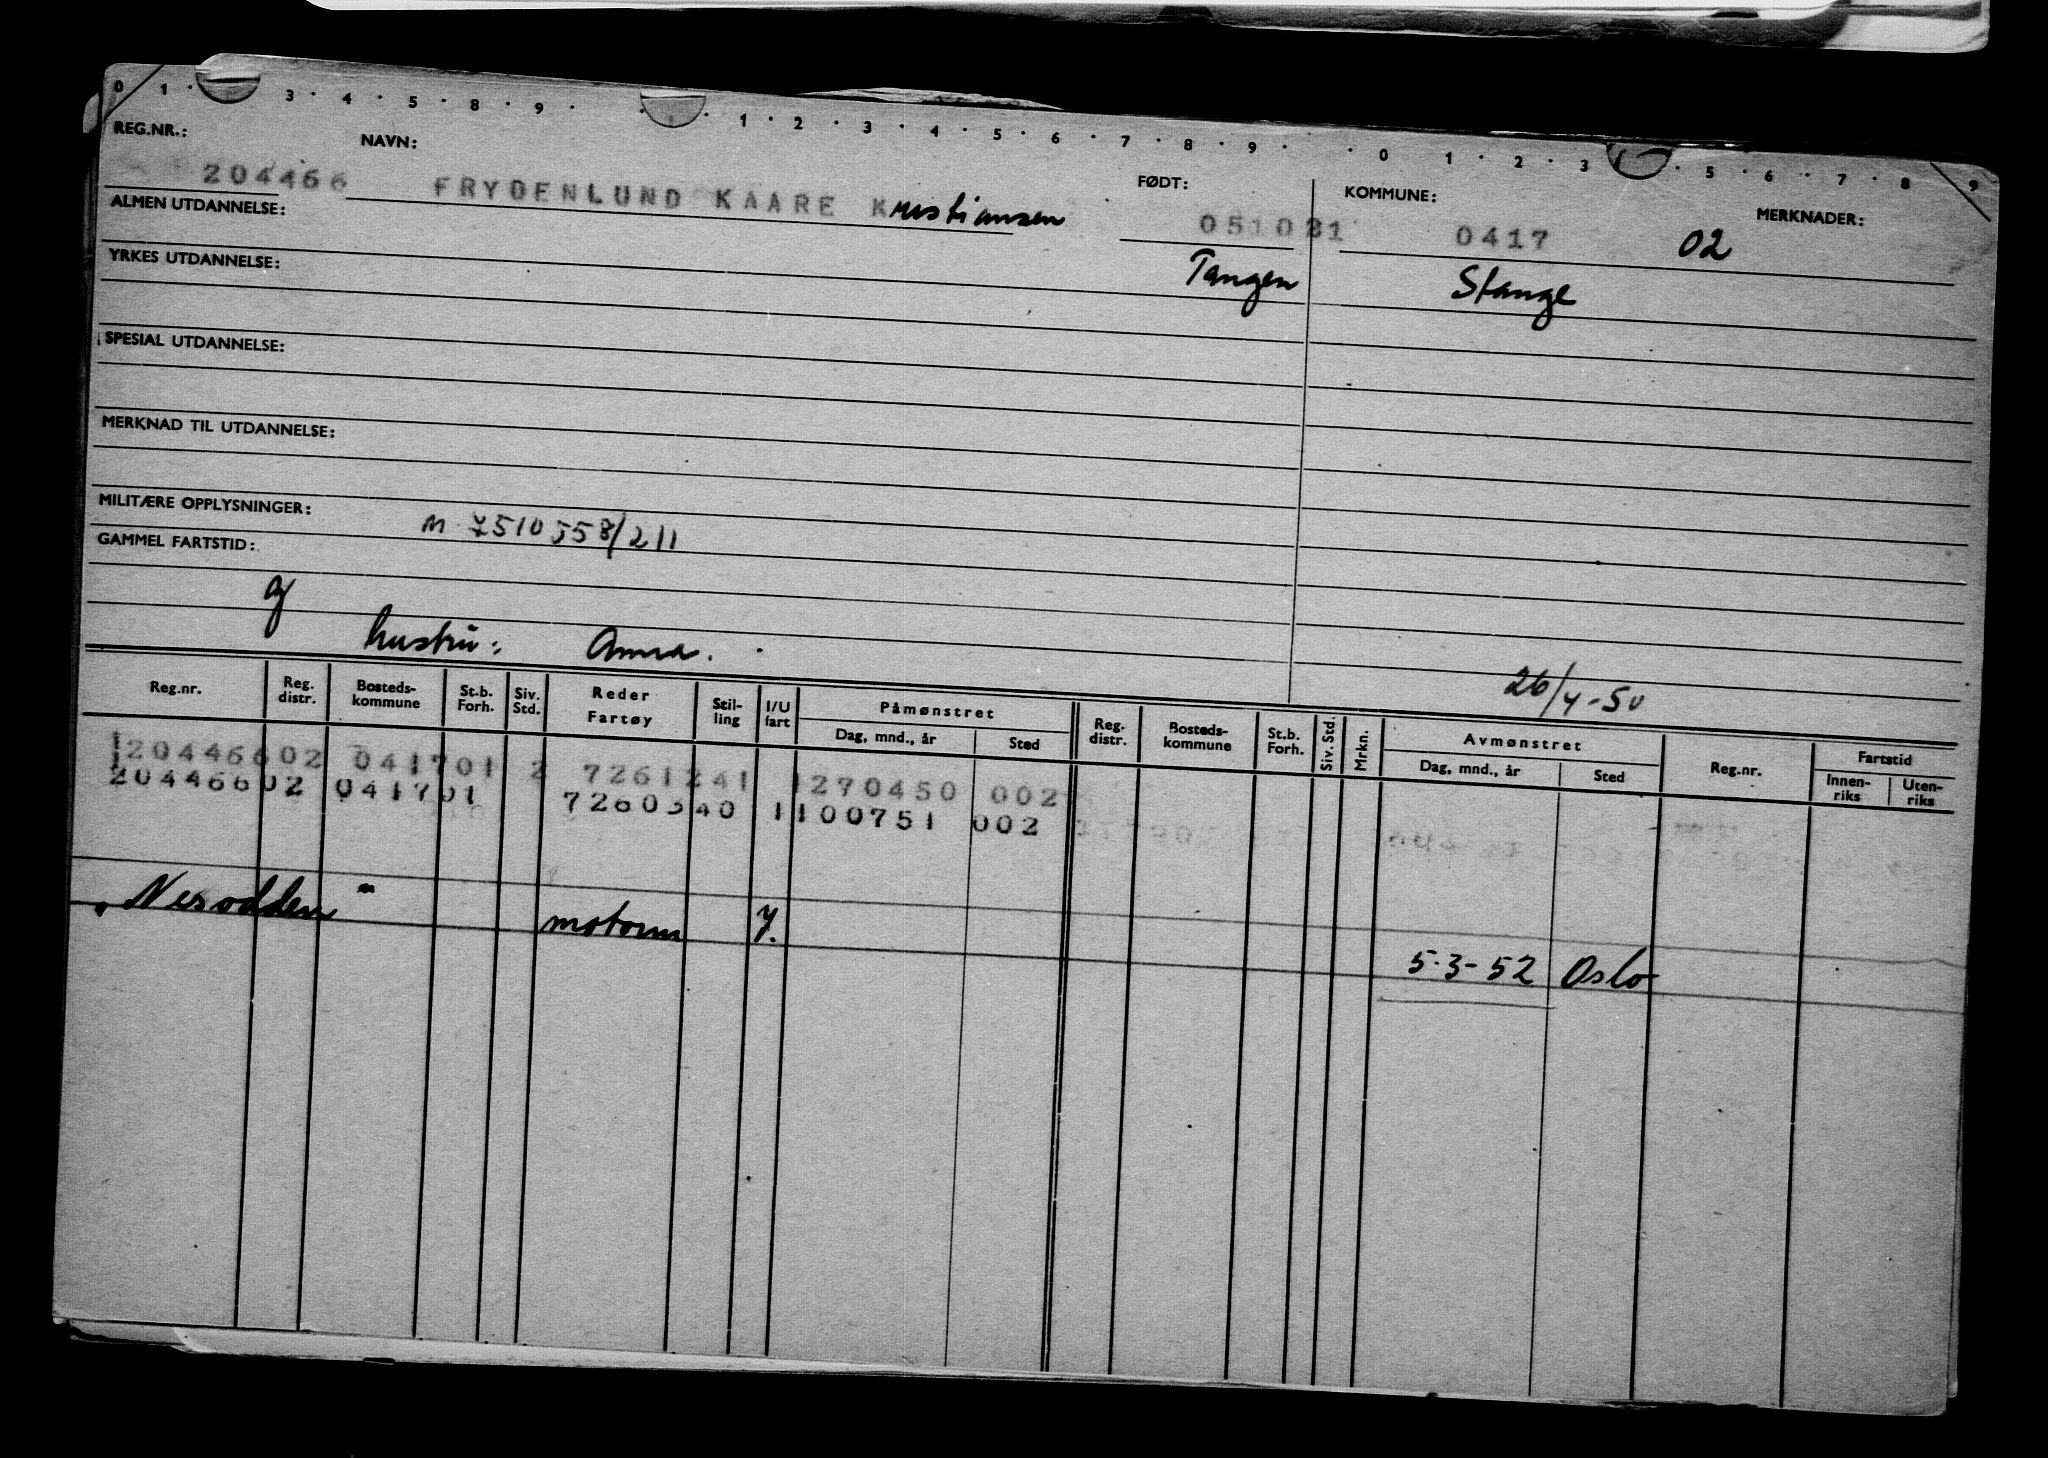 0 1 · 3 · 4 · 5 · 8 · 9 · · 1 · 2 · 3 · 4 · 5 · 6 · 7 · 8 · 9 · · 0 · 1 · 2 · 3 · 5 · 6 · 7 · 8 · 9
REG.NR.: NAVN: FØDT: KOMMUNE: MERKNADER:
204466 FRYDENLUND KAARE Kristiansen 051021 0417 02
ALMEN UTDANNELSE:
Tangen Stange
YRKES UTDANNELSE:
SPESIAL UTDANNELSE:
MERKNAD TIL UTDANNELSE:
MILITÆRE OPPLYSNINGER:
M 7510558/211
GAMMEL FARTSTID:
g
hustru: Anna.
26/4-50
Reg.nr. Reg. distr. Bosteds-kommune St.b. Forh. Siv. Std. Reder Fartøy Stil-ling I/U fart Påmønstret Dag, mnd., år Sted Reg. distr. Bosteds-kommune St.b. Forh. Siv. Std. Mrkn. Avmønstret Dag, mnd., år Sted Reg.nr. Fartstid Innen-riks Uten-riks
20446602 041701 2 7261241 1270450 002
20446602 041701 7260340 1100751 002
"Nesodden" motorm 7. 5-3-52 Oslo